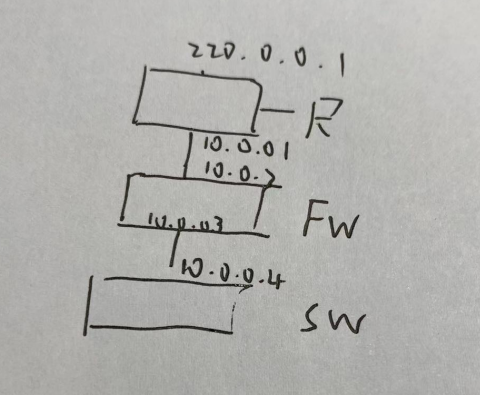 220.0.0.1
R
10.0.01
10.0.2
10.0.03
FW
10.0.0.4
SW